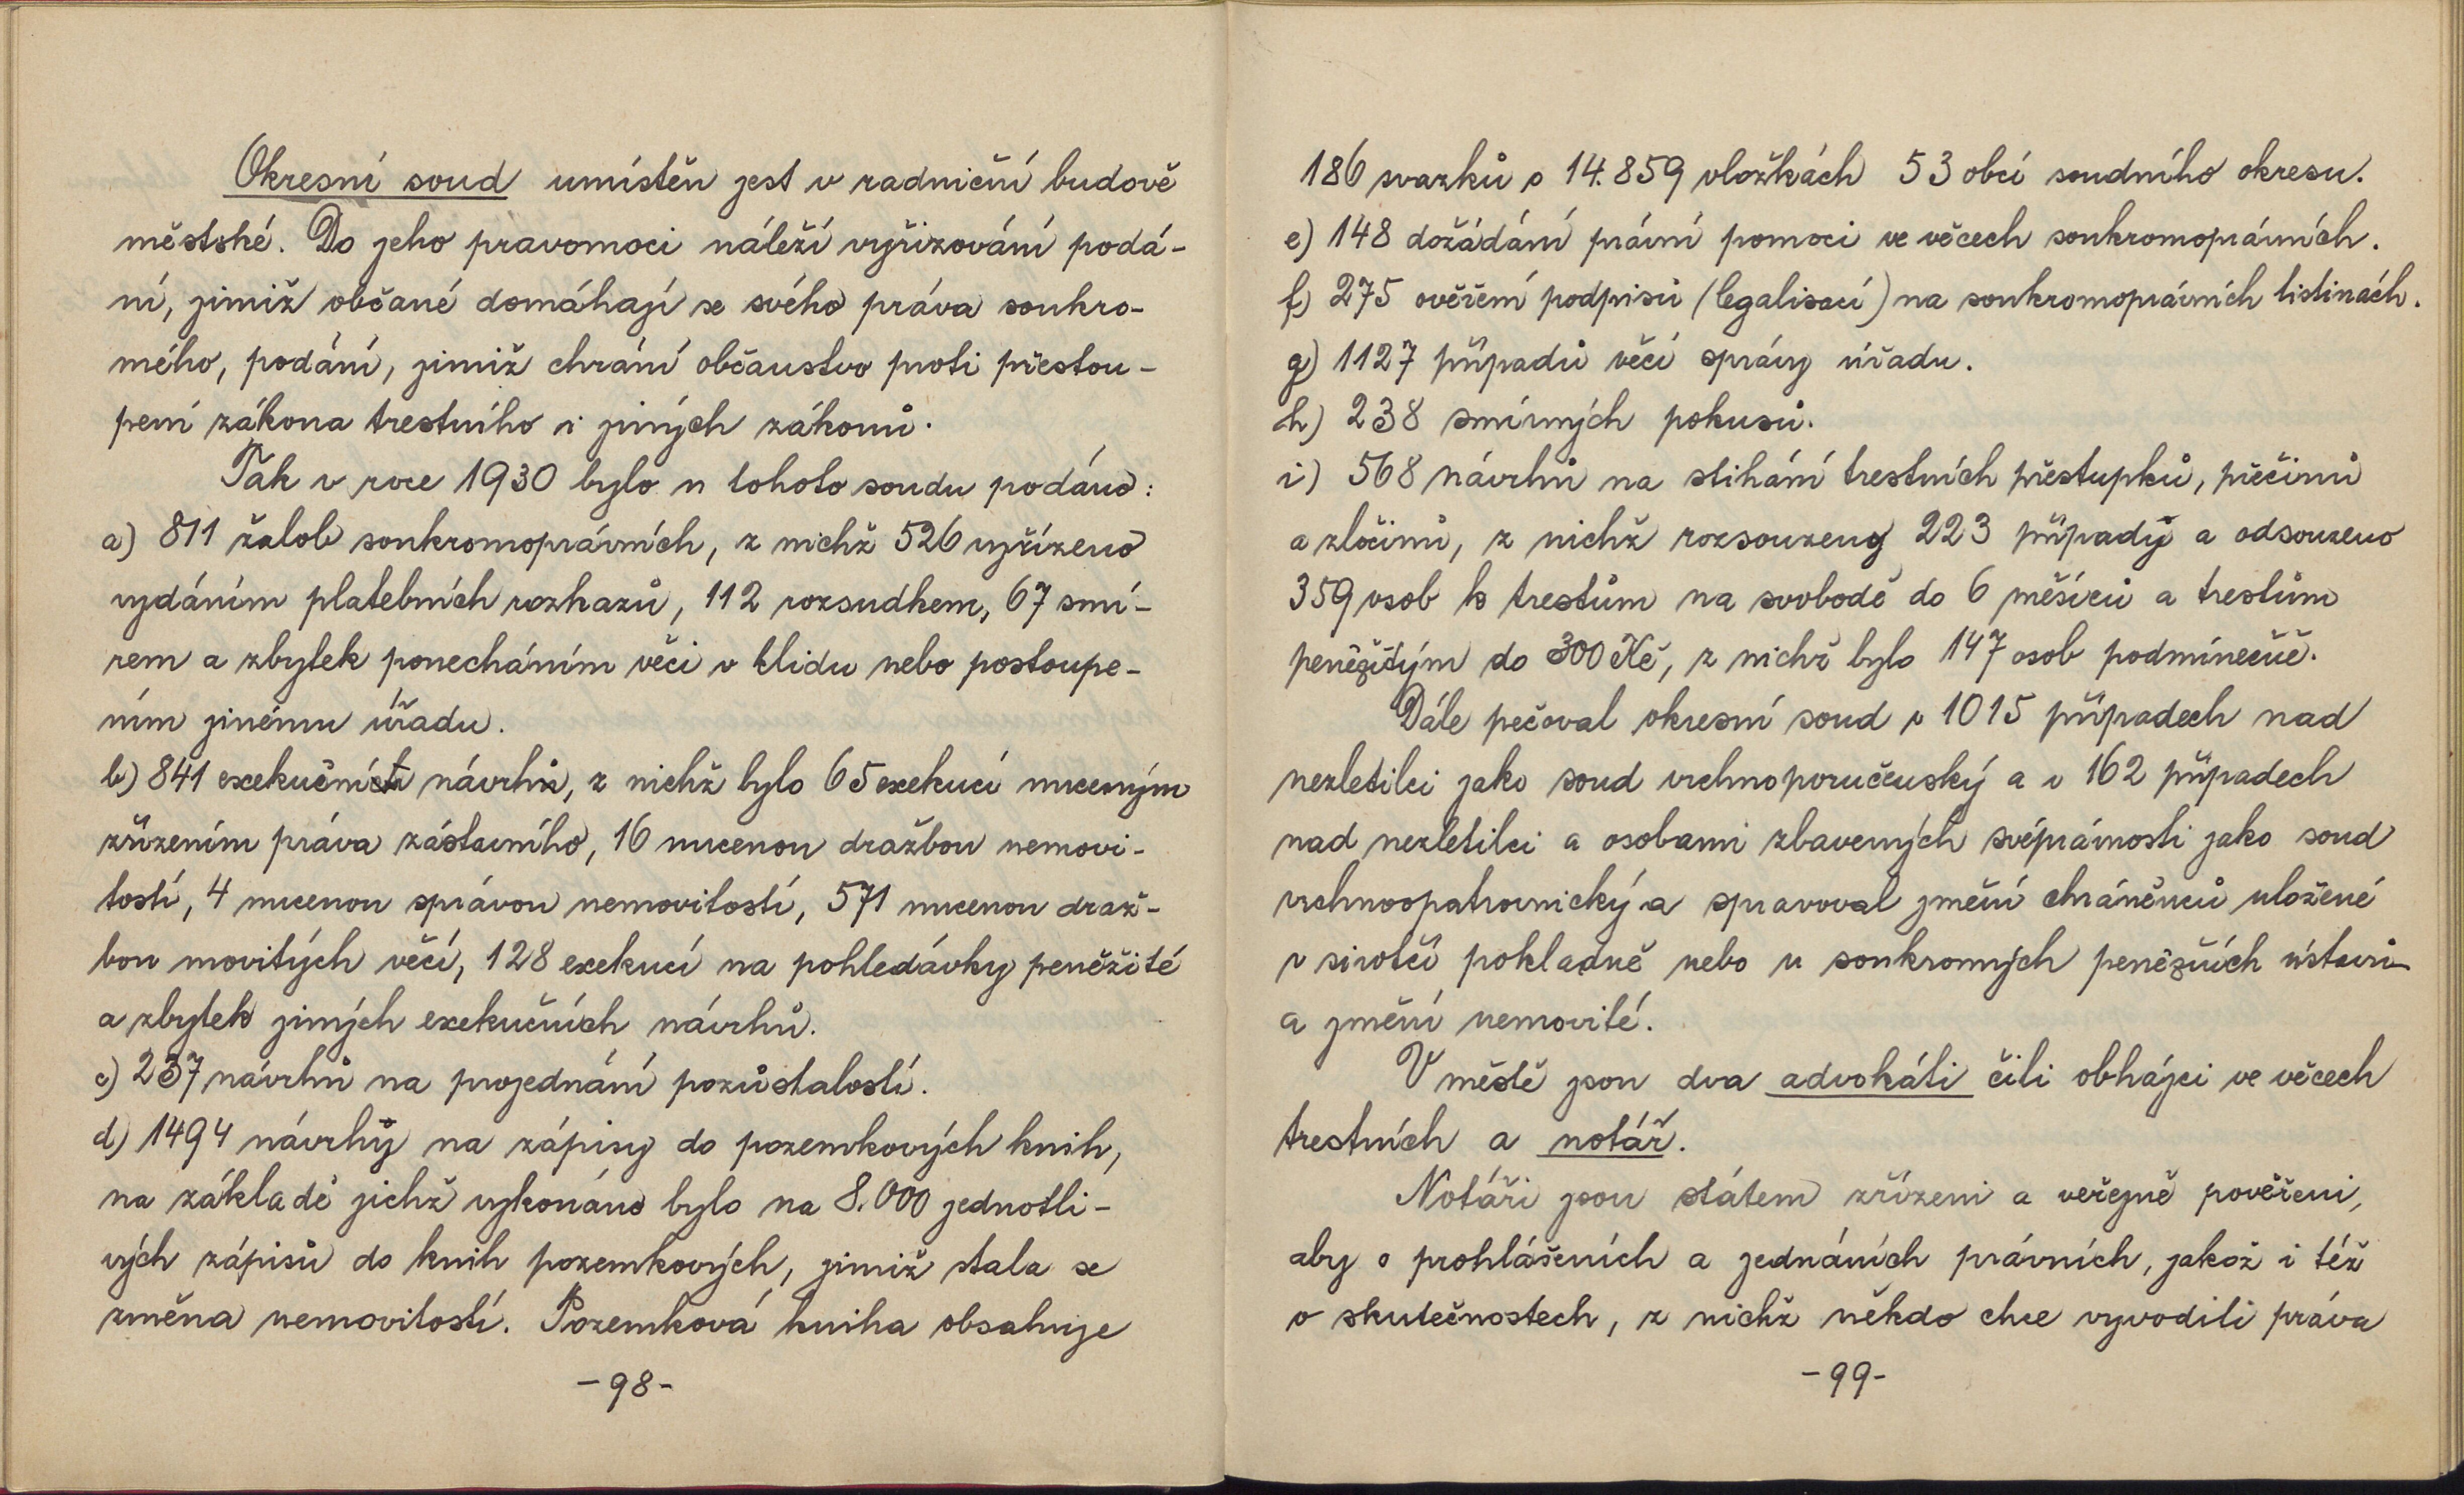 Okresní soud umístěn jest v radniční budově
městské. Do jeho pravomoci náleží vyřizování podá-
ní, jimiž občané domáhají se svého práva soukro-
mého, podání, jimiž chrání občanstvo proti přestou-
pení zákona trestního i jiných zákonů.
Tak v roce 1930 bylo u tohoto soudu podáno:
a) 811 žalob soukromoprávních, z nichž 526 vyřízeno
vydáním platebních rozkazů, 112 rozsudkem, 67 smí-
rem a zbytek ponecháním věci v klidu nebo postoupe-
ním jinému úřadu.
b) 841 exekučních návrhů, z nichž bylo 65 exekucí nuceným
zřízením práva zástavního, 16 nucenou dražbou nemovi-
tostí, 4 nucenou správou nemovitostí, 571 nucenou draž-
bou movitých věcí, 128 exekucí na pohledávky peněžité
a zbytek jiných exekučních návrhů.
c) 237 návrhů na projednání pozůstalostí.
d) 1494 návrhů na zápisy do pozemkových knih,
na základě jichž vykonáno bylo na 8.000 jednotli-
vých zápisů do knih pozemkových, jimiž stala se
změna nemovitostí. Pozemková kniha obsahuje
-98-
186 svazků o 14.859 vložkách 53 obcí soudního okresu.
e) 148 dožádání právní pomoci ve věcech soukromoprávních.
f) 275 ověření podpisů (legalisací) na soukromoprávních listinách.
g) 1127 případů věcí správy úřadu.
h) 238 smírných pokusů.
i) 568 návrhů na stíhání trestních přestupků, přečinů
a zločinů, z nichž rozsouzeny 223 případy a odsouzeno
359 osob k trestům na svobodě do 6 měsíců a trestům
peněžitým do 300 Kč, z nichž bylo 147 osob podmínečně.
Dále pečoval okresní soud v 1015 případech nad
nezletilci jako soud vrchnoporučenský a v 162 případech
nad nezletilci a osobami zbavených svéprávnosti jako soud
vrchnoopatrovnický a spravoval jmění chráněnců uložené
v sirotčí pokladně nebo u soukromých peněžních ústavů
a jmění nemovité.
V městě jsou dva advokáti čili obhájci ve věcech
trestních a notář.
Notáři jsou státem zřízeni a veřejně pověřeni,
aby o prohlášeních a jednáních právních, jakož i též
o skutečnostech, z nichž někdo chce vyvoditi práva
-99-